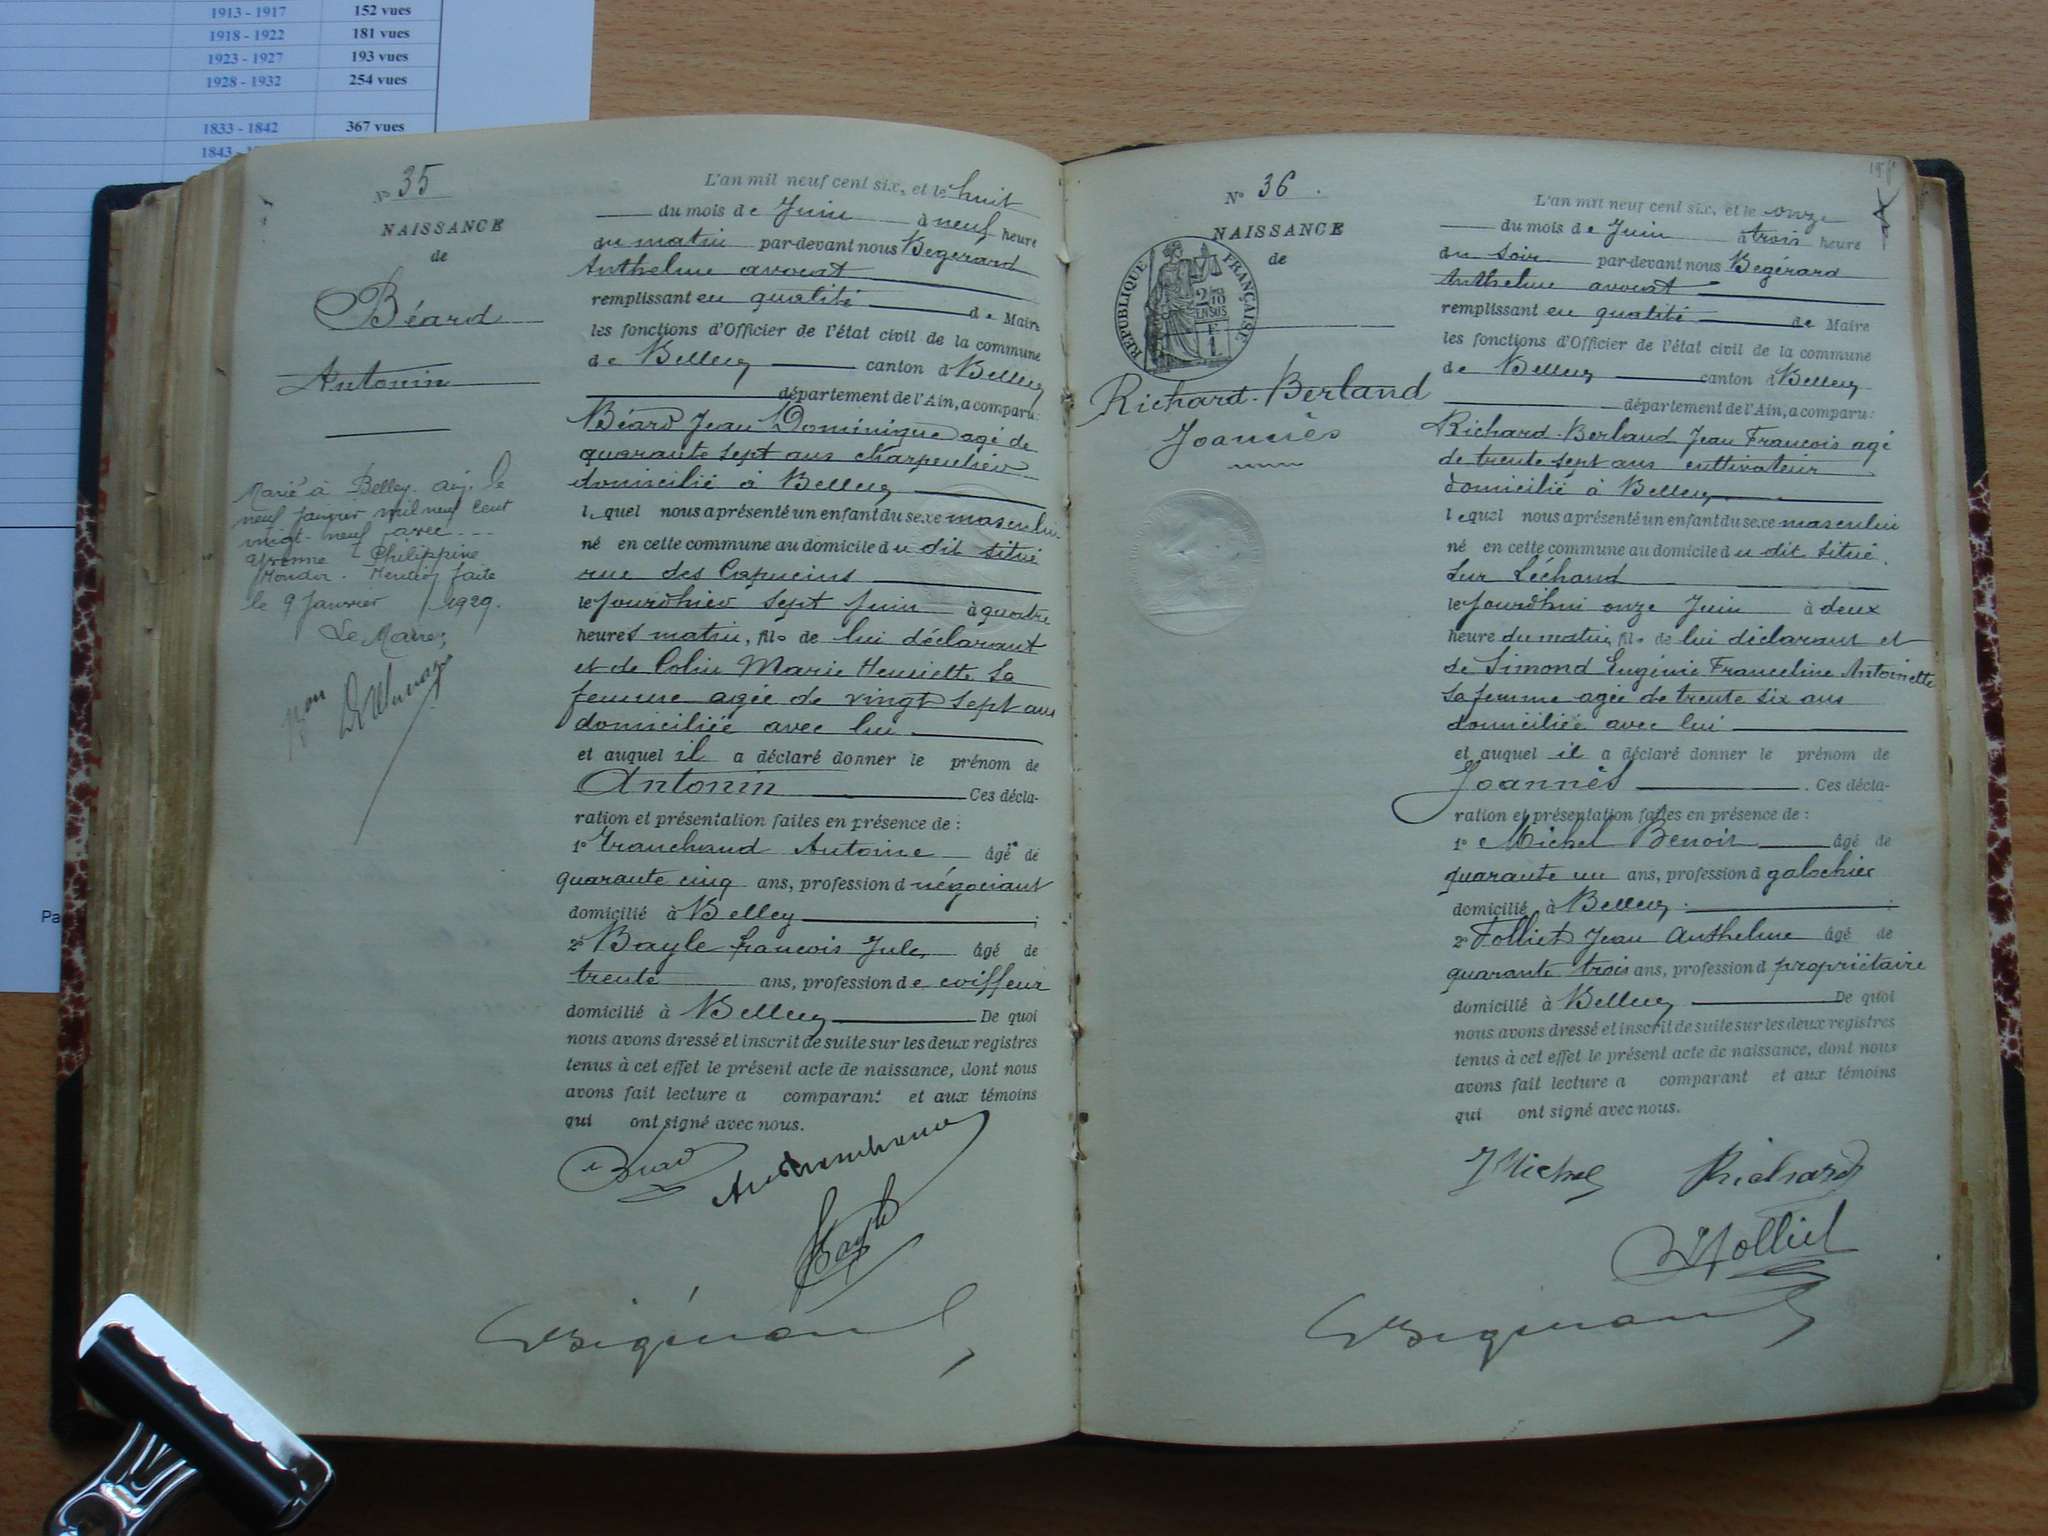 1913 - 1917 152 vues
1918 - 1922 181 vues
1923 - 1927 193 vues
1928 - 1932 254 vues
1833 - 1842 367 vues
1843 -
Pa
N° 35
NAISSANCE
de
Béard
Antonin
Marié à Belley, Ain, le
neuf Janvier mil neuf cent
vingt-neuf avec
Yvonne Philippine
Mention faite
le 9 Janvier 1929.
Le Maire,
L'an mil neuf cent six, et le huit
du mois de Juin à neuf heure
du matin par-devant nous Begerard
Anthelme avocat
remplissant en qualité de Maire
les fonctions d'Officier de l'état civil de la commune
de Belley canton d Belley
département de l'Ain, a comparu:
Béard Jean Dominique agé de
quarante sept ans charpentier
domicilié à Belley
lequel nous a présenté un enfant du sexe masculin
né en cette commune au domicile du dit situé
rue des Capucins
le jourdhier sept juin à quatre
heures matin, fils de lui déclarant
et de Colin Marie Henriette sa
femme agée de vingt sept ans
domiciliée avec lui
et auquel il a déclaré donner le prénom de
Antonin Ces décla-
ration et présentation faites en présence de :
1° Tranchand Antoine âgé de
quarante cinq ans, profession d négociant
domicilié à Belley ;
2° Bayle francois Jules âgé de
trente ans, profession de coiffeur
domicilié à Belley De quoi
nous avons dressé et inscrit de suite sur les deux registres
tenus à cet effet le présent acte de naissance, dont nous
avons fait lecture a comparant et aux témoins
qui ont signé avec nous.
Bayle
N° 36.
NAISSANCE
de
RÉPUBLIQUE FRANÇAISE
2/10
EN SUS
Richard-Berland
Joannès
L'an mil neuf cent six, et le onze
du mois de Juin à trois heure
du soir par-devant nous Begérard
Anthelme avocat
remplissant en qualité de Maire
les fonctions d'Officier de l'état civil de la commune
de Belley canton d Belley
département de l'Ain, a comparu:
Richard-Berland Jean Francois agé
de trente sept ans cultivateur
domicilié à Belley
lequel nous a présenté un enfant du sexe masculin
né en cette commune au domicile du dit situé
Sur Léchaud
le jourd'hui onze Juin à deux
heure du matin, fils de lui déclarant et
de Simond Eugénie Franceline Antoinette
sa femme agée de trente six ans
domiciliée avec lui
et auquel il a déclaré donner le prénom de
Joannès . Ces décla-
ration et présentation faites en présence de :
1° Michel Benoit âgé de
quarante un ans, profession d galochier
domicilié à Belley ;
2° Folliet Jean Anthelme âgé de
quarante trois ans, profession d propriétaire
domicilié à Belley De quoi
nous avons dressé et inscrit de suite sur les deux registres
tenus à cet effet le présent acte de naissance, dont nous
avons fait lecture a comparant et aux témoins
qui ont signé avec nous.
Michel Richard
Folliet